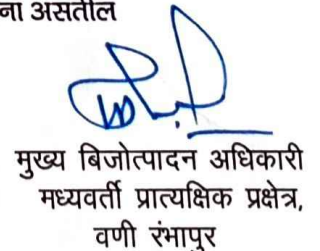 ना असतील
मुख्य बिजोत्पादन अधिकारी
मध्यवर्ती प्रात्यक्षिक प्रक्षेत्र,
वणी रंभापुर